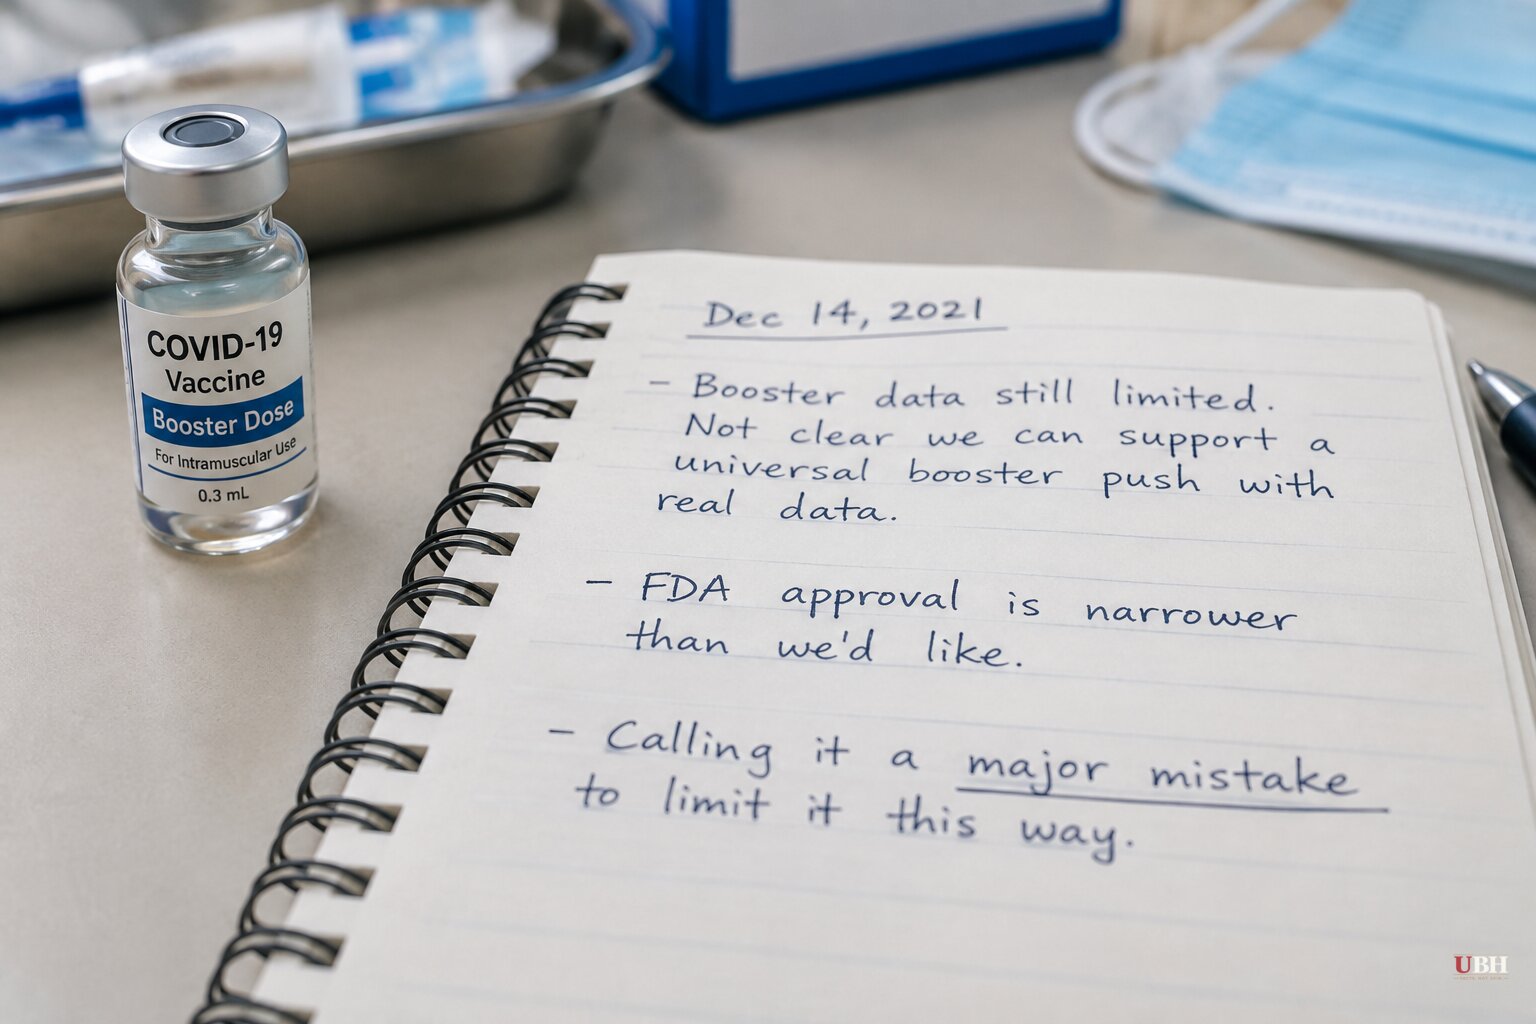 COVID-19
Vaccine
Booster Dose
For Intramuscular Use
0.3 mL
Dec 14, 2021
- Booster data still limited.
Not clear we can support a
universal booster push with
real data.
- FDA approval is narrower
than we'd like.
- Calling it a major mistake
to limit it this way.
UBH